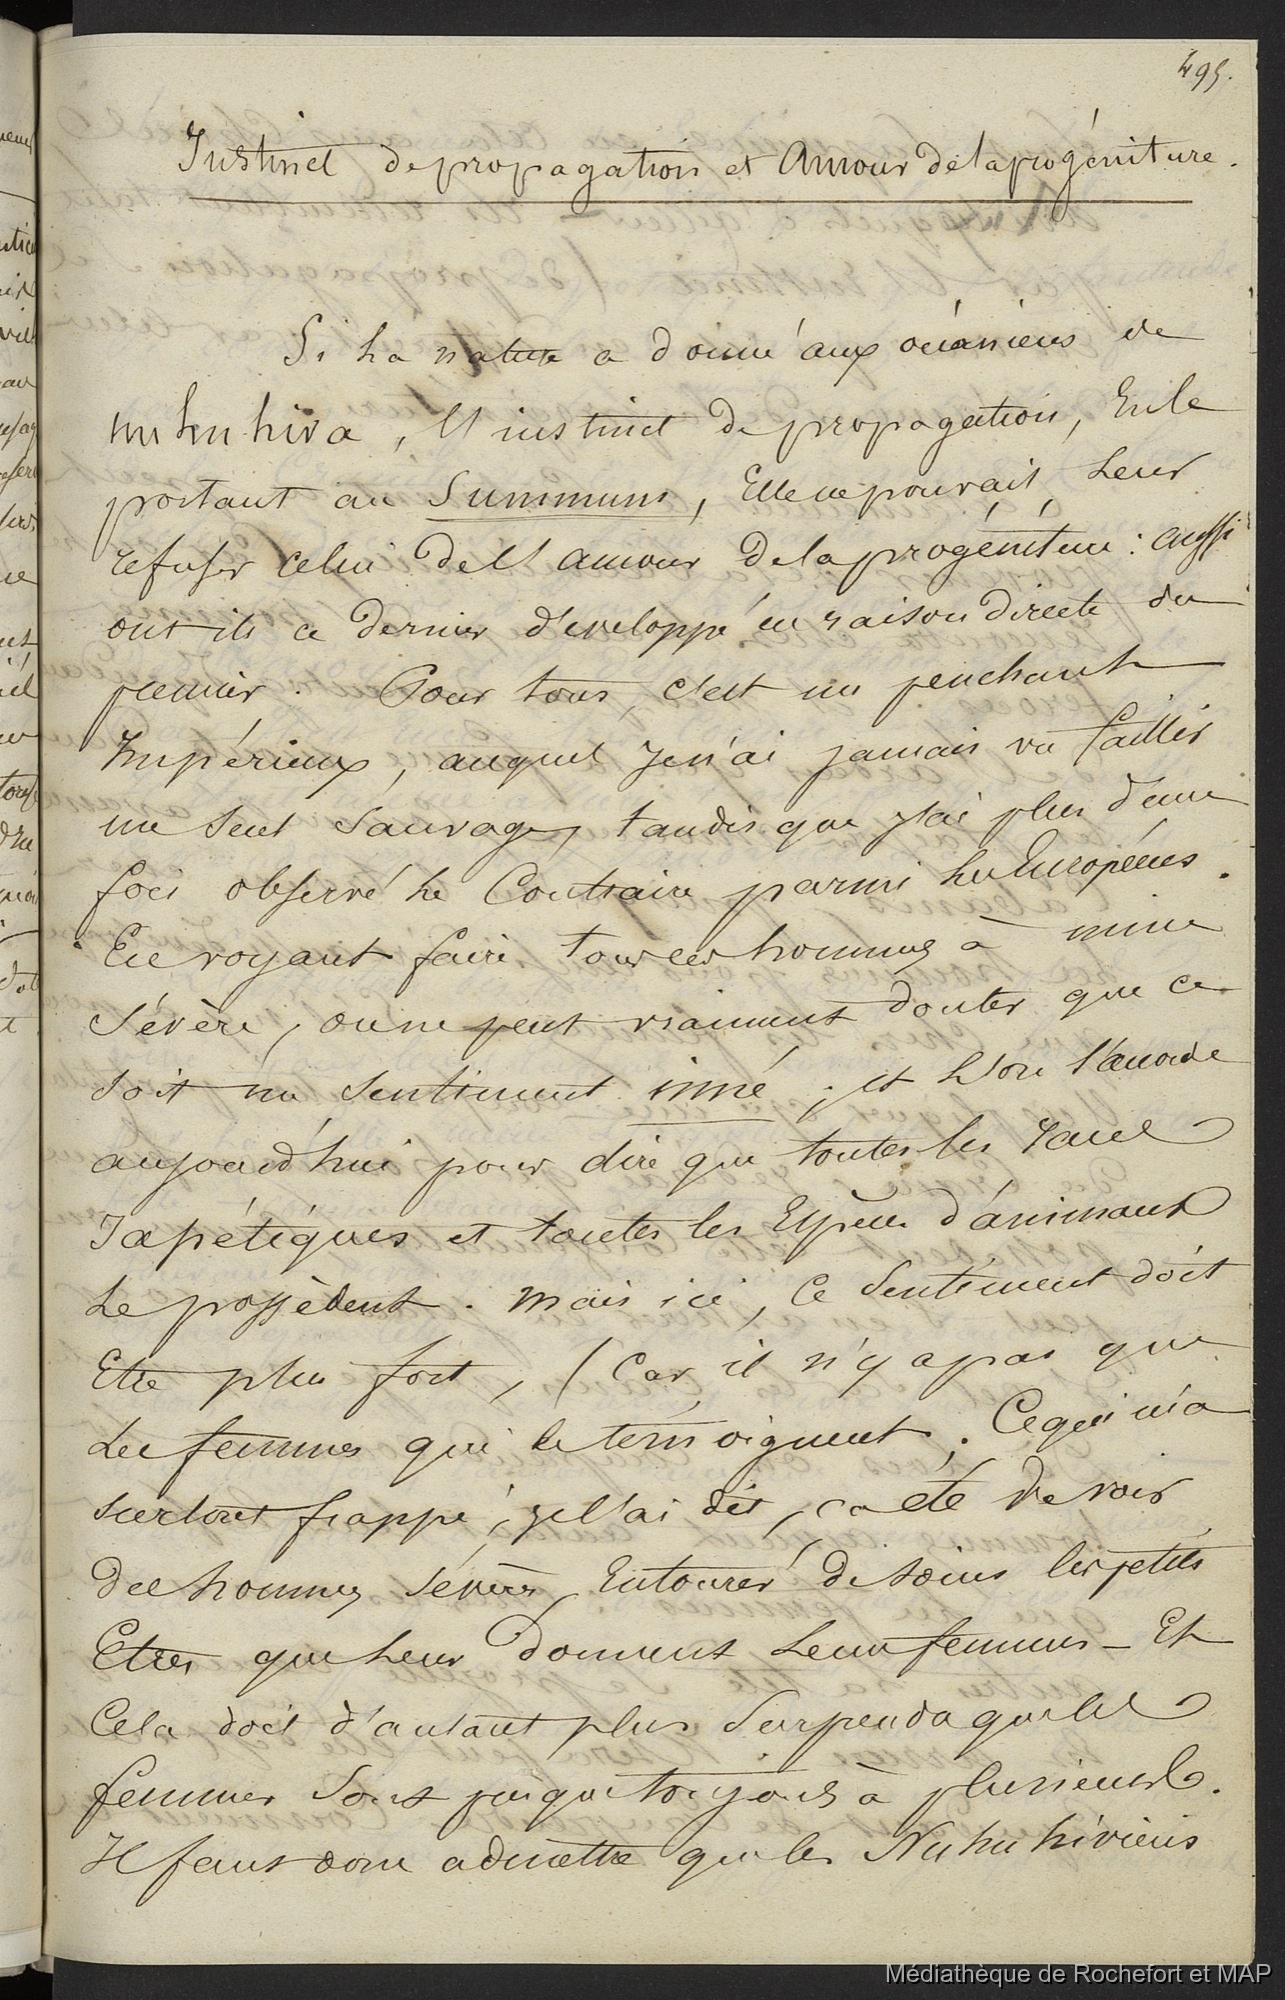 495.
Instinct de propagation et Amour de la progéniture.
Si la nature a donné aux océaniens de
nuhuhiva, l'instinct de propagation, En le
portant au Summum, Elle ne pouvait leur
refuser celui de l'amour de la progéniture : aussi
ont ils ce dernier développé en raison directe du
premier. Pour tous, c'est un penchant
Impérieux, auquel je n'ai jamais vu faillir
un seul sauvage, tandis que j'ai plus d'une
fois observé le Contraire parmi les Européens.
En voyant faire tous ces hommes à mine
Sévère, on ne peut vraiment douter que ce
soit un sentiment inné ; et l'on s'accorde
aujourd'hui pour dire que toutes les races
Japétiques et toutes les Espèces d'animaux
le possèdent. Mais ici, ce sentiment doit
Etre plus fort, (Car il n'y a pas que
les femmes qui le témoignent. Ce qui m'a
surtout frappé, je l'ai dit, ça été de voir
des hommes sévères, Entourer de soins les petits
Etres que leur donnent leurs femmes – Et
Cela doit d'autant plus surprendre que les
femmes sont presque toujours à plusieurs.
Il faut donc admettre que les Nuhuhiviens
Médiathèque de Rochefort et MAP